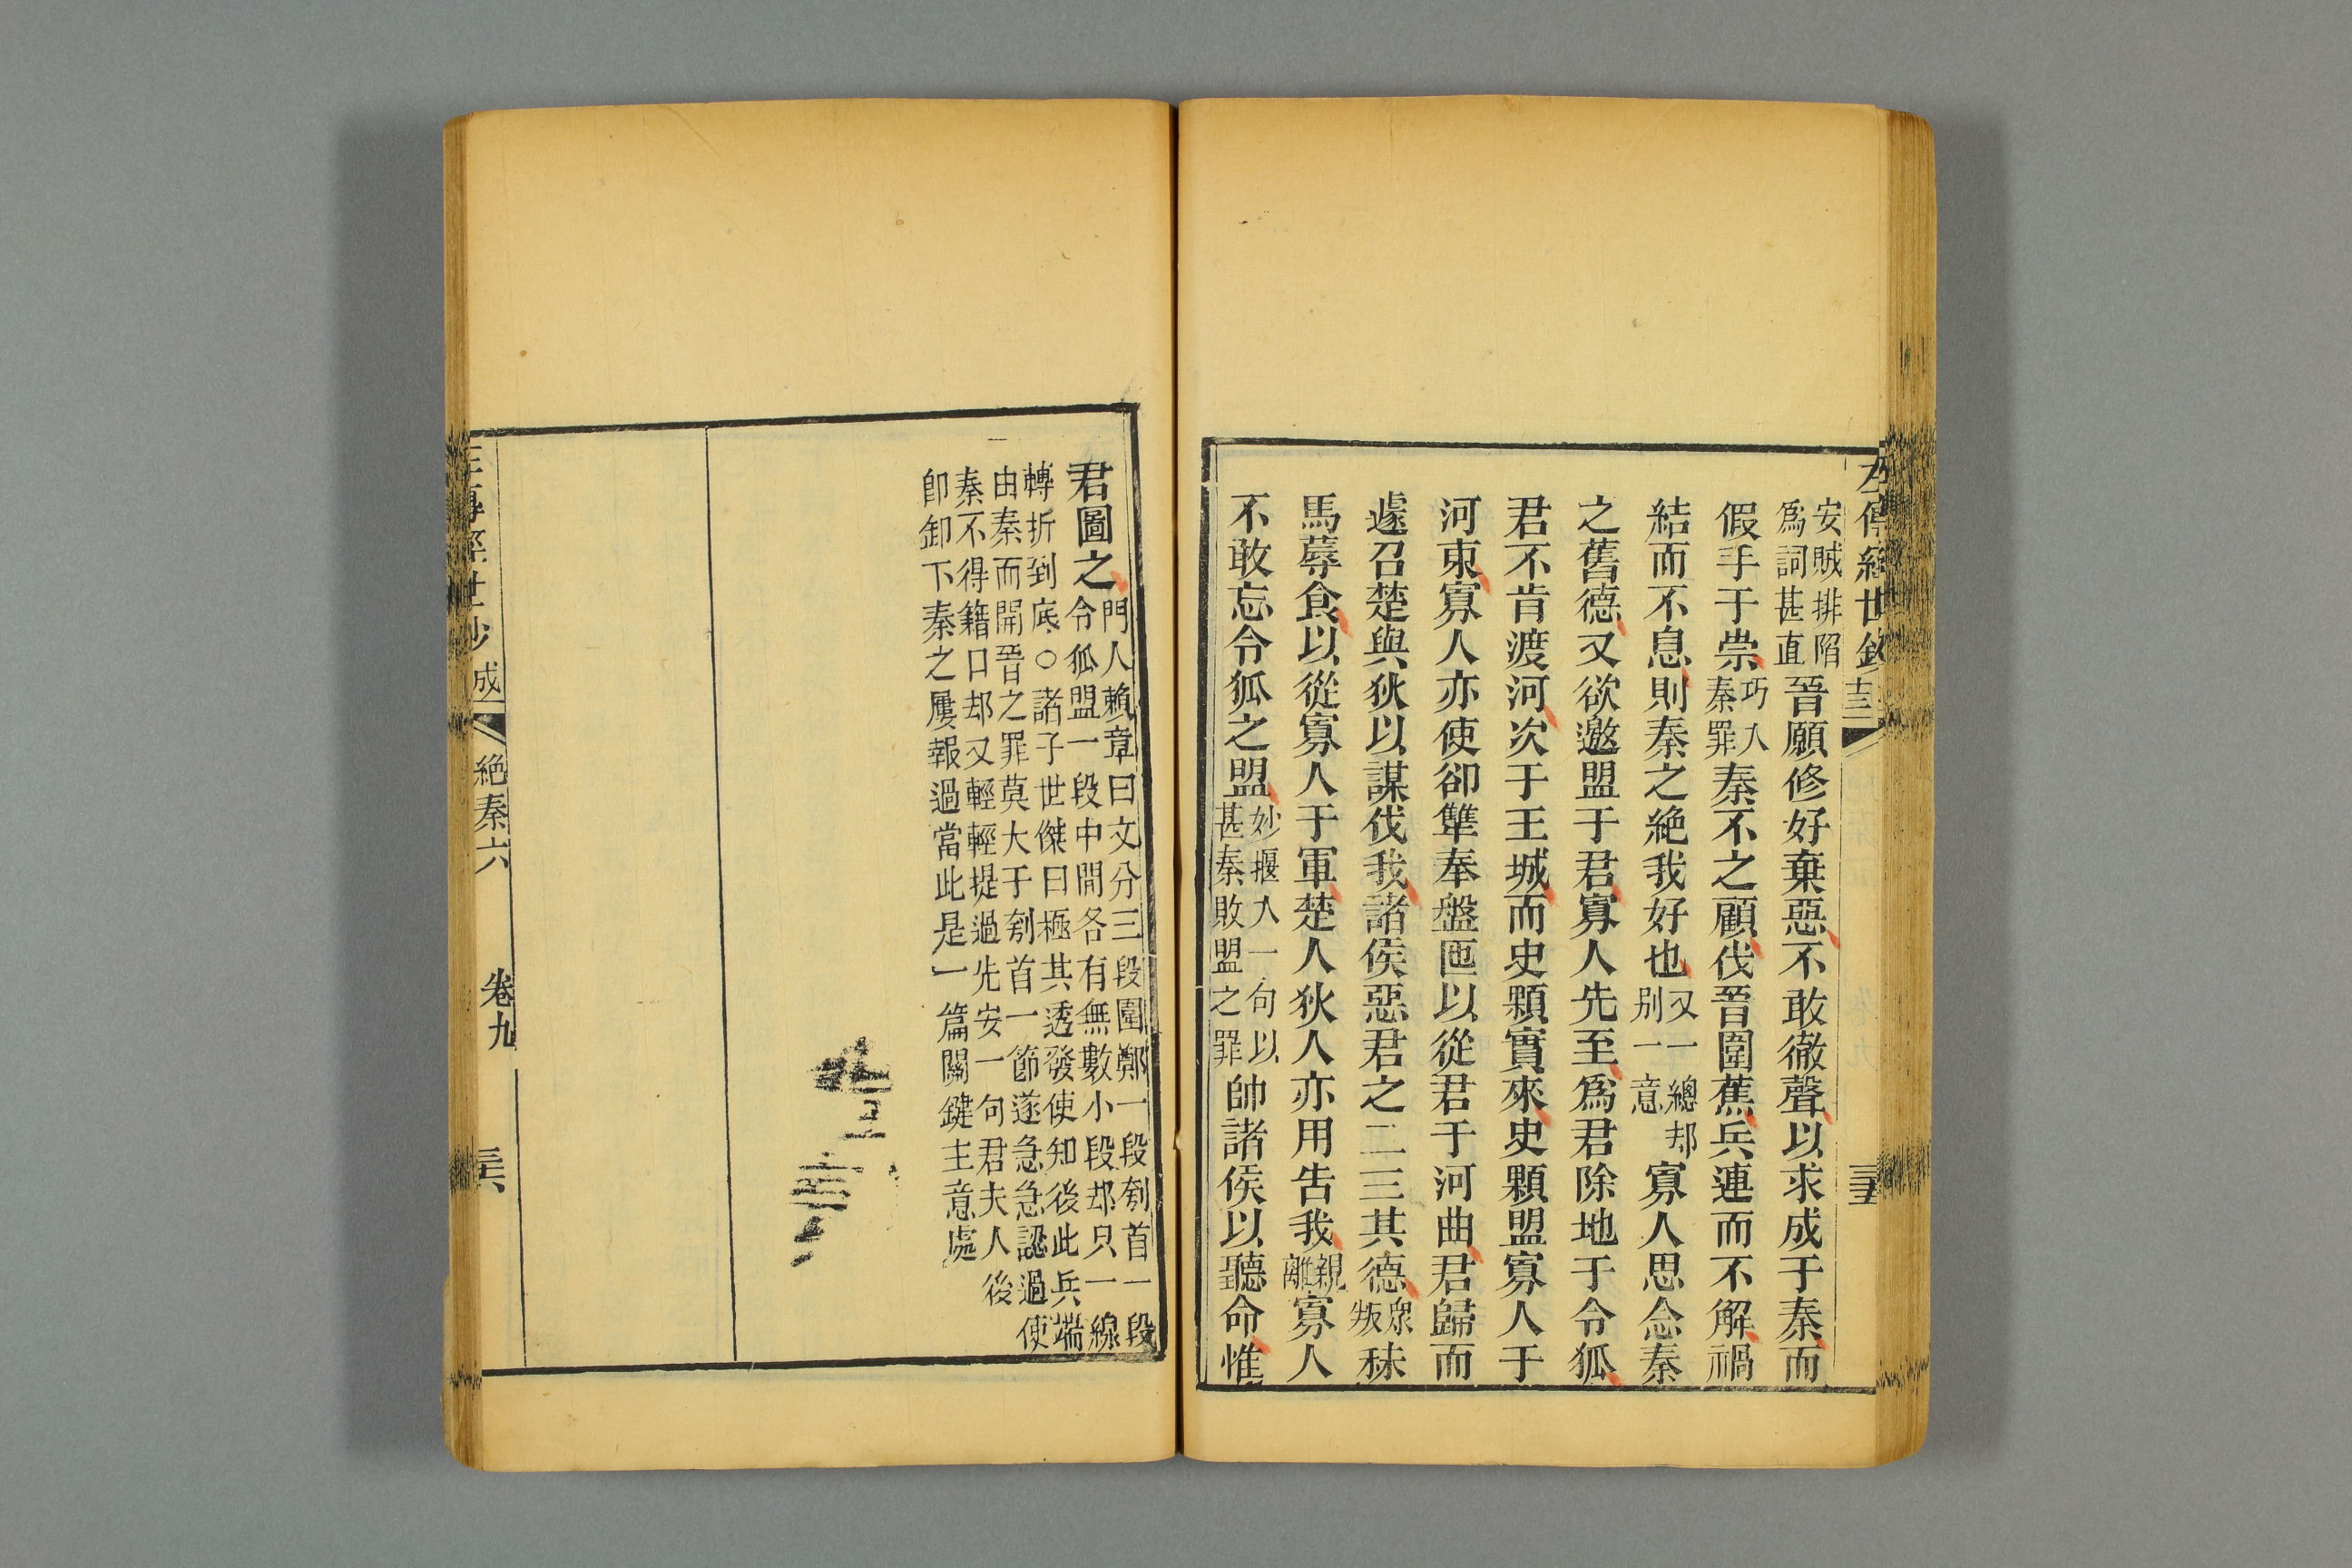 左傳經世鈔 十三 三五
安賊排陷
爲詞甚直
晉願修好棄惡不敢徹聲以求成于秦而
假手于祟巧入
秦罪
秦不之顧伐晉圍蕉兵連而不解禍
結而不息則秦之絶我好也又一總却
别一意
寡人思念秦
之舊德又欲邀盟于君寡人先至爲君除地于令狐
君不肯渡河次于王城而史顆實來史顆盟寡人于
河東寡人亦使卻犨奉盤匜以從君于河曲君歸而
遽召楚與狄以謀伐我諸侯惡君之二三其德衆
叛
秣
馬蓐食以從寡人于軍楚人狄人亦用告我親
離
寡人
不敢忘令狐之盟妙揠入一句以
甚秦敗盟之罪
帥諸侯以聽命惟
君圖之門人賴章曰文分三段圍鄭一段刳首一段
令狐盟一段中間各有無數小段却只一線
轉折到底○諸子世傑曰極其透發使知後此兵端
由秦而開晉之罪莫大于刳首一節遂急急認過使
秦不得籍口却又輕輕提過先安一句君夫人後
卽卸下秦之屢報過當此是一篇關鍵主意處
左傳經世鈔 成 絶秦六 卷九 三六